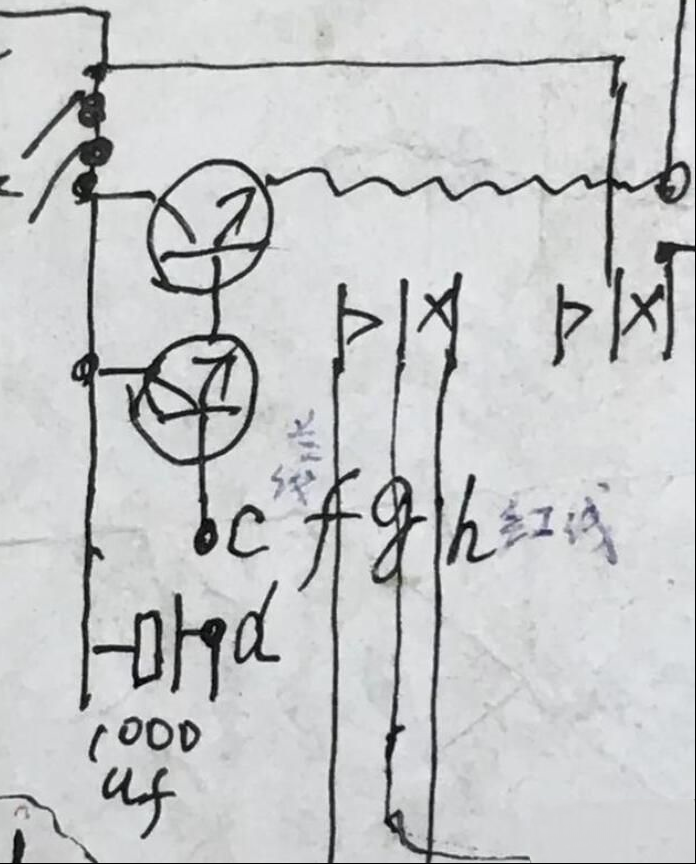 c
兰线
f g h
红线
d
1000
uf